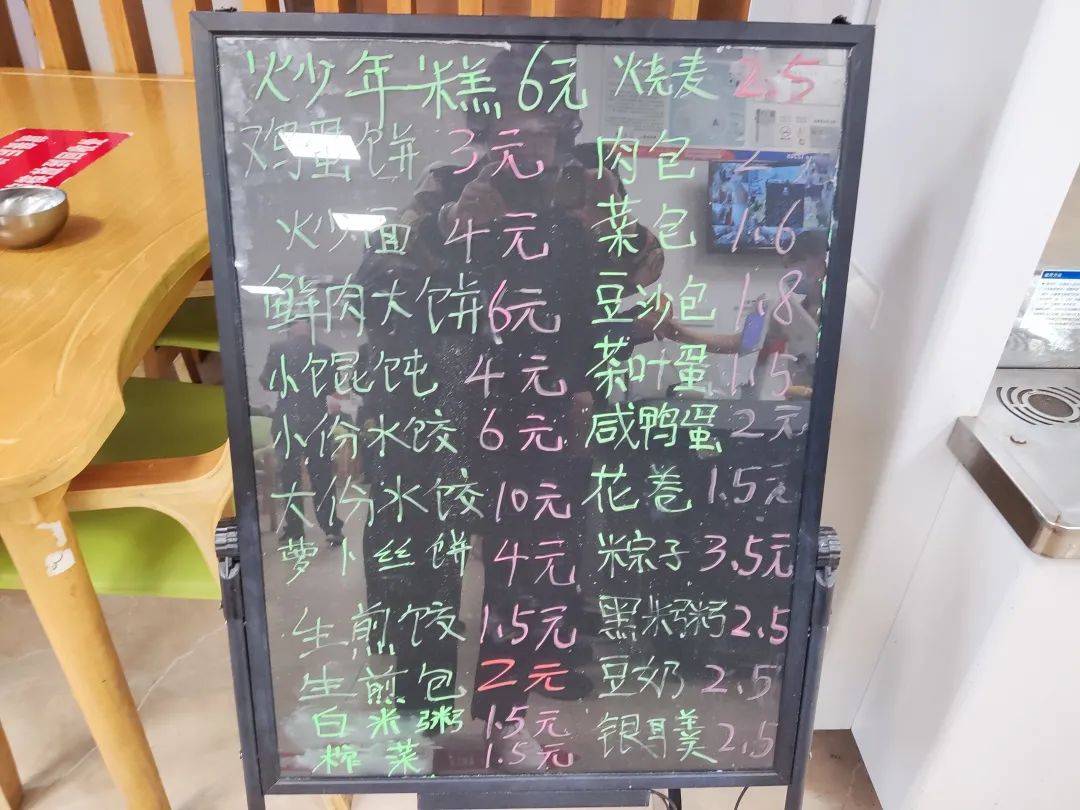 炒年糕 6元
鸡蛋饼 3元
炒面 4元
鲜肉大饼 6元
小馄饨 4元
小份水饺 6元
大份水饺 10元
萝卜丝饼 4元
生煎饺 1.5元
生煎包 2元
白米粥 1.5元
榨菜 1.5元
烧麦 2.5
肉包
菜包 1.6
豆沙包 1.8
茶叶蛋 1.5
咸鸭蛋 2元
花卷 1.5元
粽子 3.5元
黑米粥 2.5
豆奶 2.5
银耳羹 2.5